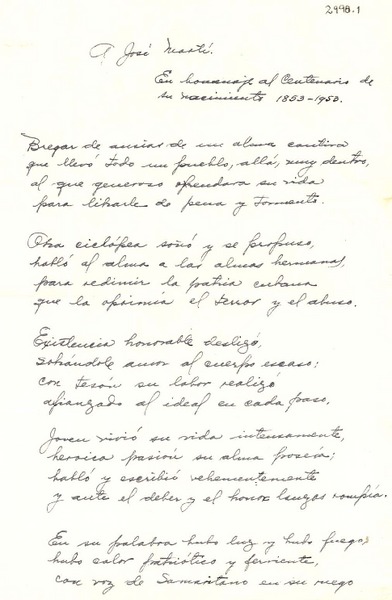 2998.1
A José Martí.
En homenaje al Centenario de
su nacimiento 1853-1953.
Bregar de ansias de un alma cautiva
que llevó todo un pueblo, allá, muy dentro,
al que generoso ofrendara su vida
para librarle de pena y tormento.
Obra ciclópea soñó y se propuso,
habló al alma a las almas hermanas,
para redimir la patria cubana
que la oprimía el terror y el abuso.
Existencia honorable deslizó,
sobrándole amor al cuerpo escaso;
con tesón su labor realizó
afianzado al ideal en cada paso.
Joven vivió su vida intensamente,
heroica pasión su alma poseía;
habló y escribió vehementemente
y ante el deber y el honor lanzas rompía.
En su palabra hubo luz y hubo fuego,
hubo calor patriótico y ferviente,
con voz de Samaritano en su ruego